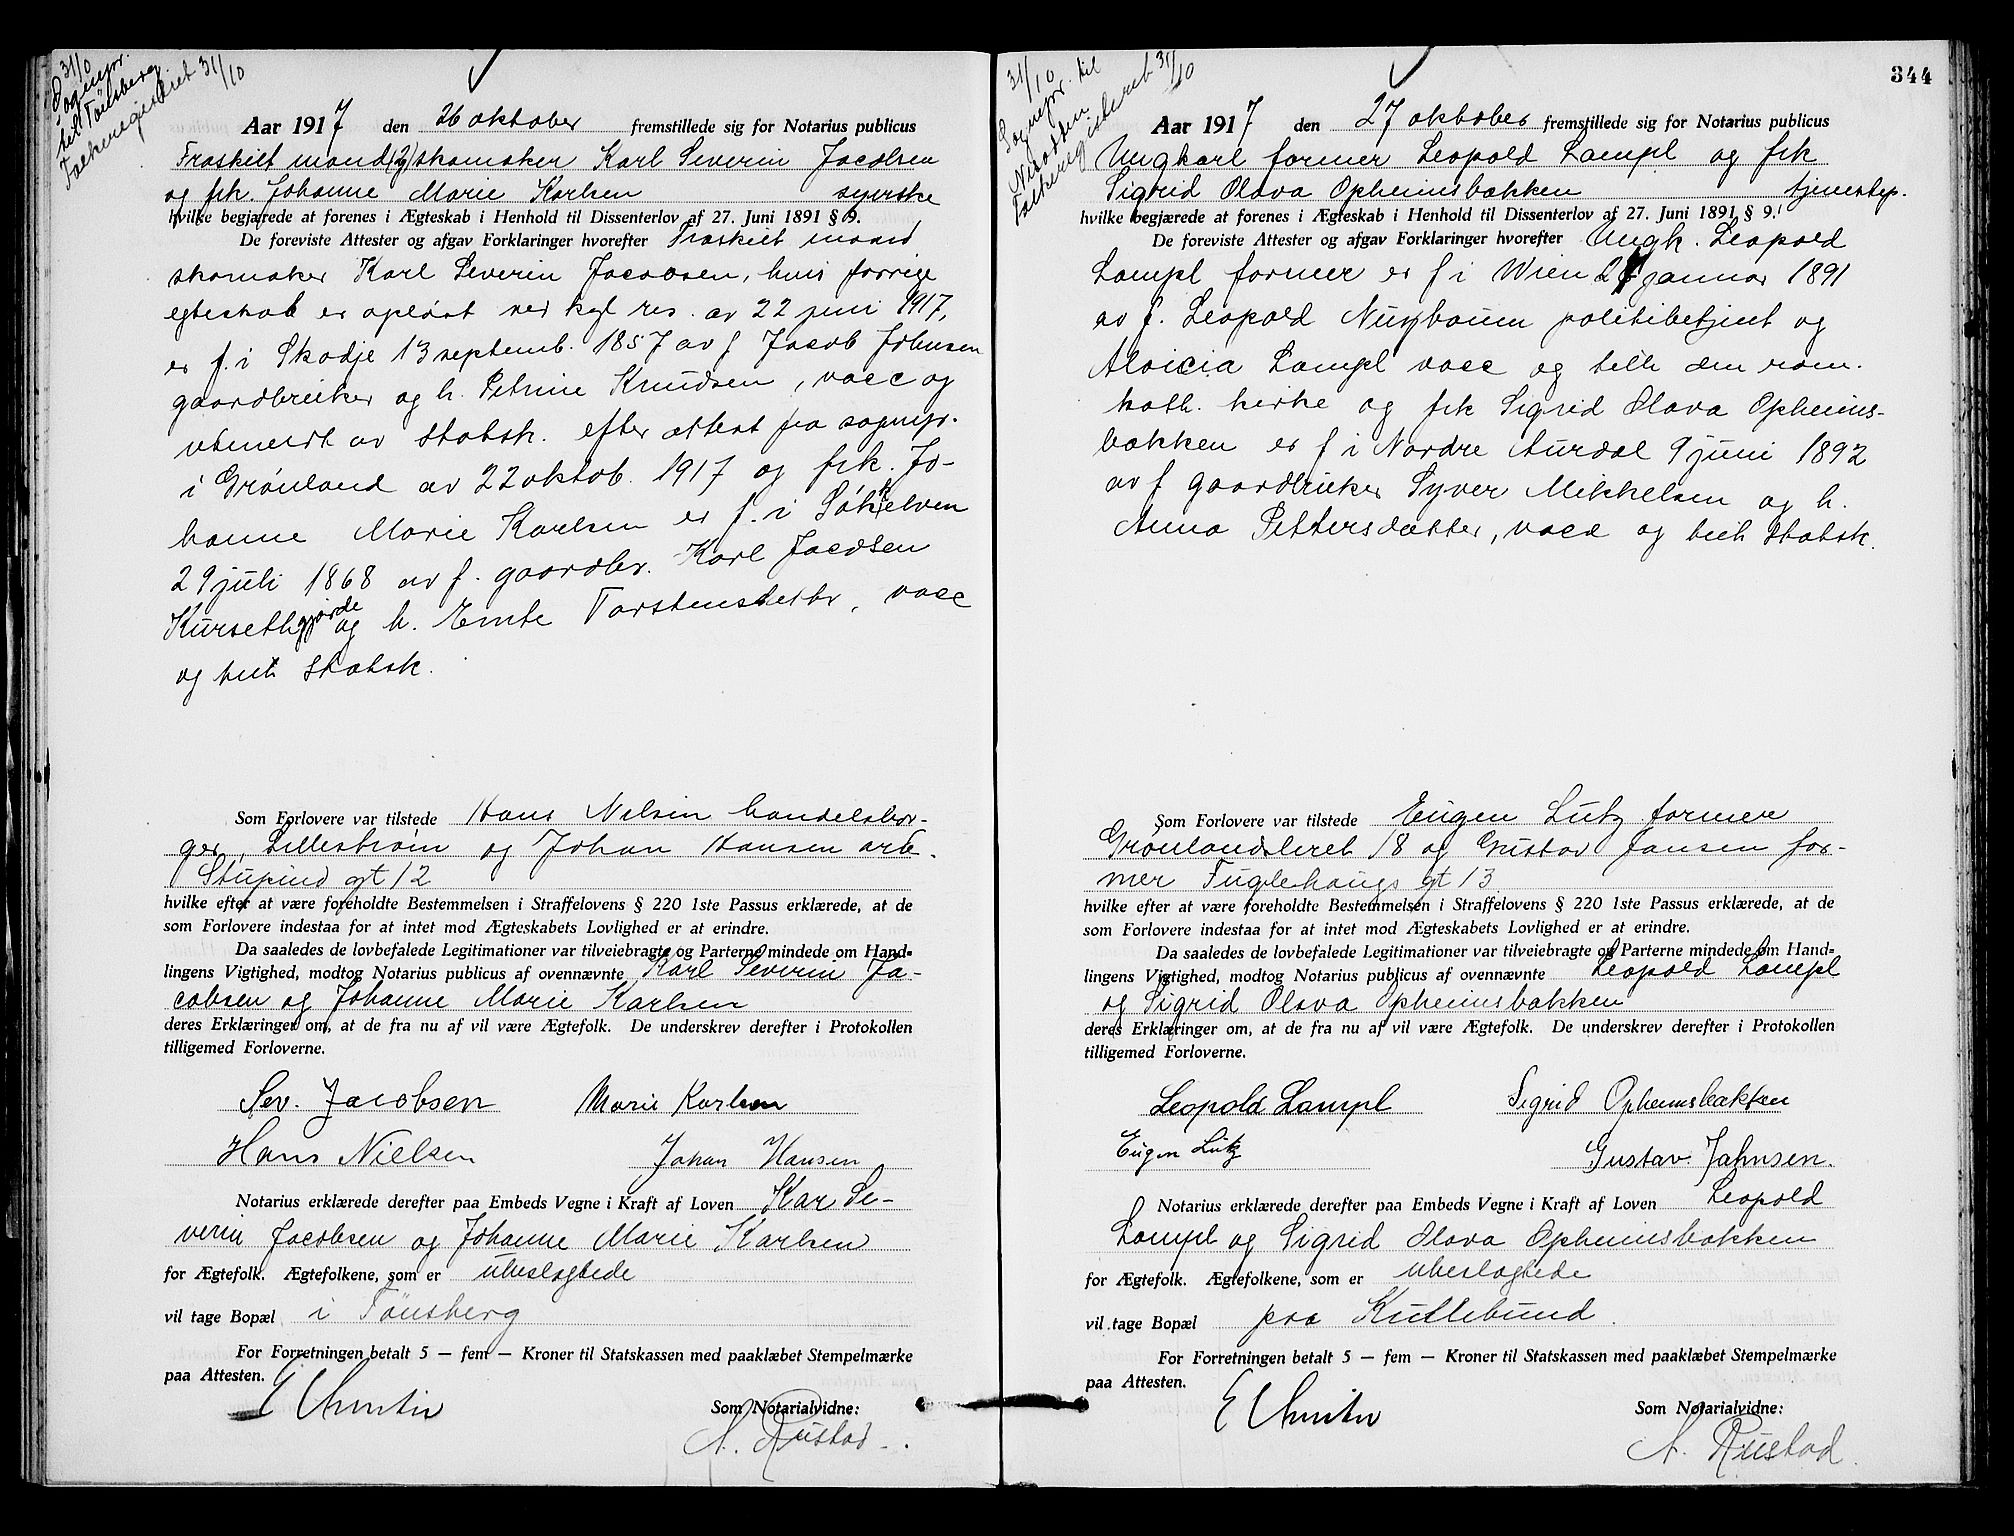 31/10
Sognepr.
til Tönsberg
Folkeregisteret 31/10
Aar 1917 den 26 oktober fremstillede sig for Notarius publicus
Fraskilt mand (2) skomaker Karl Severin Jacobsen
og frk. Johanne Marie Karlsen syerske
hvilke begjærede at forenes i Ægteskab i Henhold til Dissenterlov af 27. Juni 1891 § 9.
De foreviste Attester og afgav Forklaringer hvorefter Fraskilt mand
skomaker Karl Severin Jacobsen, hvis forrige
egteskab er opløst ved kgl res. av 22 juni 1917,
er f. i Skodje 13 septemb. 1857 av f Jacob Johnsen
gaardbruker og h. Petrine Knudsen, vacc og
utmeldt av statsk. efter attest fra sognepr.
i Grønland av 22 oktob. 1917 og frk. Jo-
hanne Marie Karlsen er f. i Søkkelven
29 juli 1868 av f. gaardbr. Karl Jacobsen
Kursethgjærde og h. Ernte Torstensdatter, vacc
og tilh statsk.
Som Forlovere var tilstede Hans Nilsen handelsbor-
ger, Lillestrøm og Johan Hansen arb.
Stupind gt 12
hvilke efter at være foreholdte Bestemmelsen i Straffelovens § 220 1ste Passus erklærede, at de
som Forlovere indestaa for at intet mod Ægteskabets Lovlighed er at erindre.
Da saaledes de lovbefalede Legitimationer var tilveiebragte og Parterne mindede om Hand-
lingens Vigtighed, modtog Notarius publicus af ovennævnte Karl Severin Ja-
cobsen og Johanne Marie Karlsen
deres Erklæringer om, at de fra nu af vil være Ægtefolk. De underskrev derefter i Protokollen
tilligemed Forloverne.
Sev. Jacobsen Marie Karlsen
Hans Nielsen Johan Hansen
Notarius erklærede derefter paa Embeds Vegne i Kraft af Loven Kar Se-
verin Jacobsen og Johanne Marie Karlsen
for Ægtefolk. Ægtefolkene, som er ubeslægtede
vil tage Bopæl i Tönsberg
For Forretningen betalt 5 — fem — Kroner til Statskassen med paaklæbet Stempelmærke
paa Attesten.
Som Notarialvidne:
A. Rustad
344
31/10
Sognepr. til
Notodden
Folkeregisteret 31/10
Aar 1917 den 27 oktober fremstillede sig for Notarius publicus
Ungkarl former Leopold Lampl og frk
Sigrid Olava Opheimsbakken tjenestep.
hvilke begjærede at forenes i Ægteskab i Henhold til Dissenterlov af 27. Juni 1891 § 9.
De foreviste Attester og afgav Forklaringer hvorefter Ungk. Leopold
Lampl former er f i Wien 27 januar 1891
av f. Leopold Nuszbaum politibetjent og
Aloicia Lampl vacc og tilh den rom.
kath. kirke og frk Sigrid Olava Opheims-
bakken er f i Nordre Aurdal 9 juni 1892
av f gaardbruker Syver Mikkelsen og h.
Anna Pettersdatter, vacc og tilh statsk.
Som Forlovere var tilstede Eugen Lutz former
Grønlandsleret 18 og Gustav Jansen for-
mer Fuglehaugs gt 13
hvilke efter at være foreholdte Bestemmelsen i Straffelovens § 220 1ste Passus erklærede, at de
som Forlovere indestaa for at intet mod Ægteskabets Lovlighed er at erindre.
Da saaledes de lovbefalede Legitimationer var tilveiebragte og Parterne mindede om Hand-
lingens Vigtighed, modtog Notarius publicus af ovennævnte Leopold Lampl
og Sigrid Olava Opheimsbakken
deres Erklæringer om, at de fra nu af vil være Ægtefolk. De underskrev derefter i Protokollen
tilligemed Forloverne.
Leopold Lampl Sigrid Opheimsbakken
Eugen Lutz Gustav Jahnsen.
Notarius erklærede derefter paa Embeds Vegne i Kraft af Loven Leopold
Lampl og Sigrid Olava Opheimsbakken
for Ægtefolk. Ægtefolkene, som er ubeslægtede
vil tage Bopæl paa Kullebund.
For Forretningen betalt 5 — fem — Kroner til Statskassen med paaklæbet Stempelmærke
paa Attesten.
Som Notarialvidne:
A. Rustad